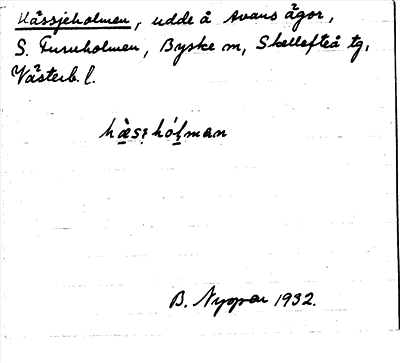 Hässjeholmen, udde å Avans ägor,
S. Furuholmen, Byske sn, Skellefteå tg,
Västerb. l.
hæ̀sɩ hóḷman
B. 1932.